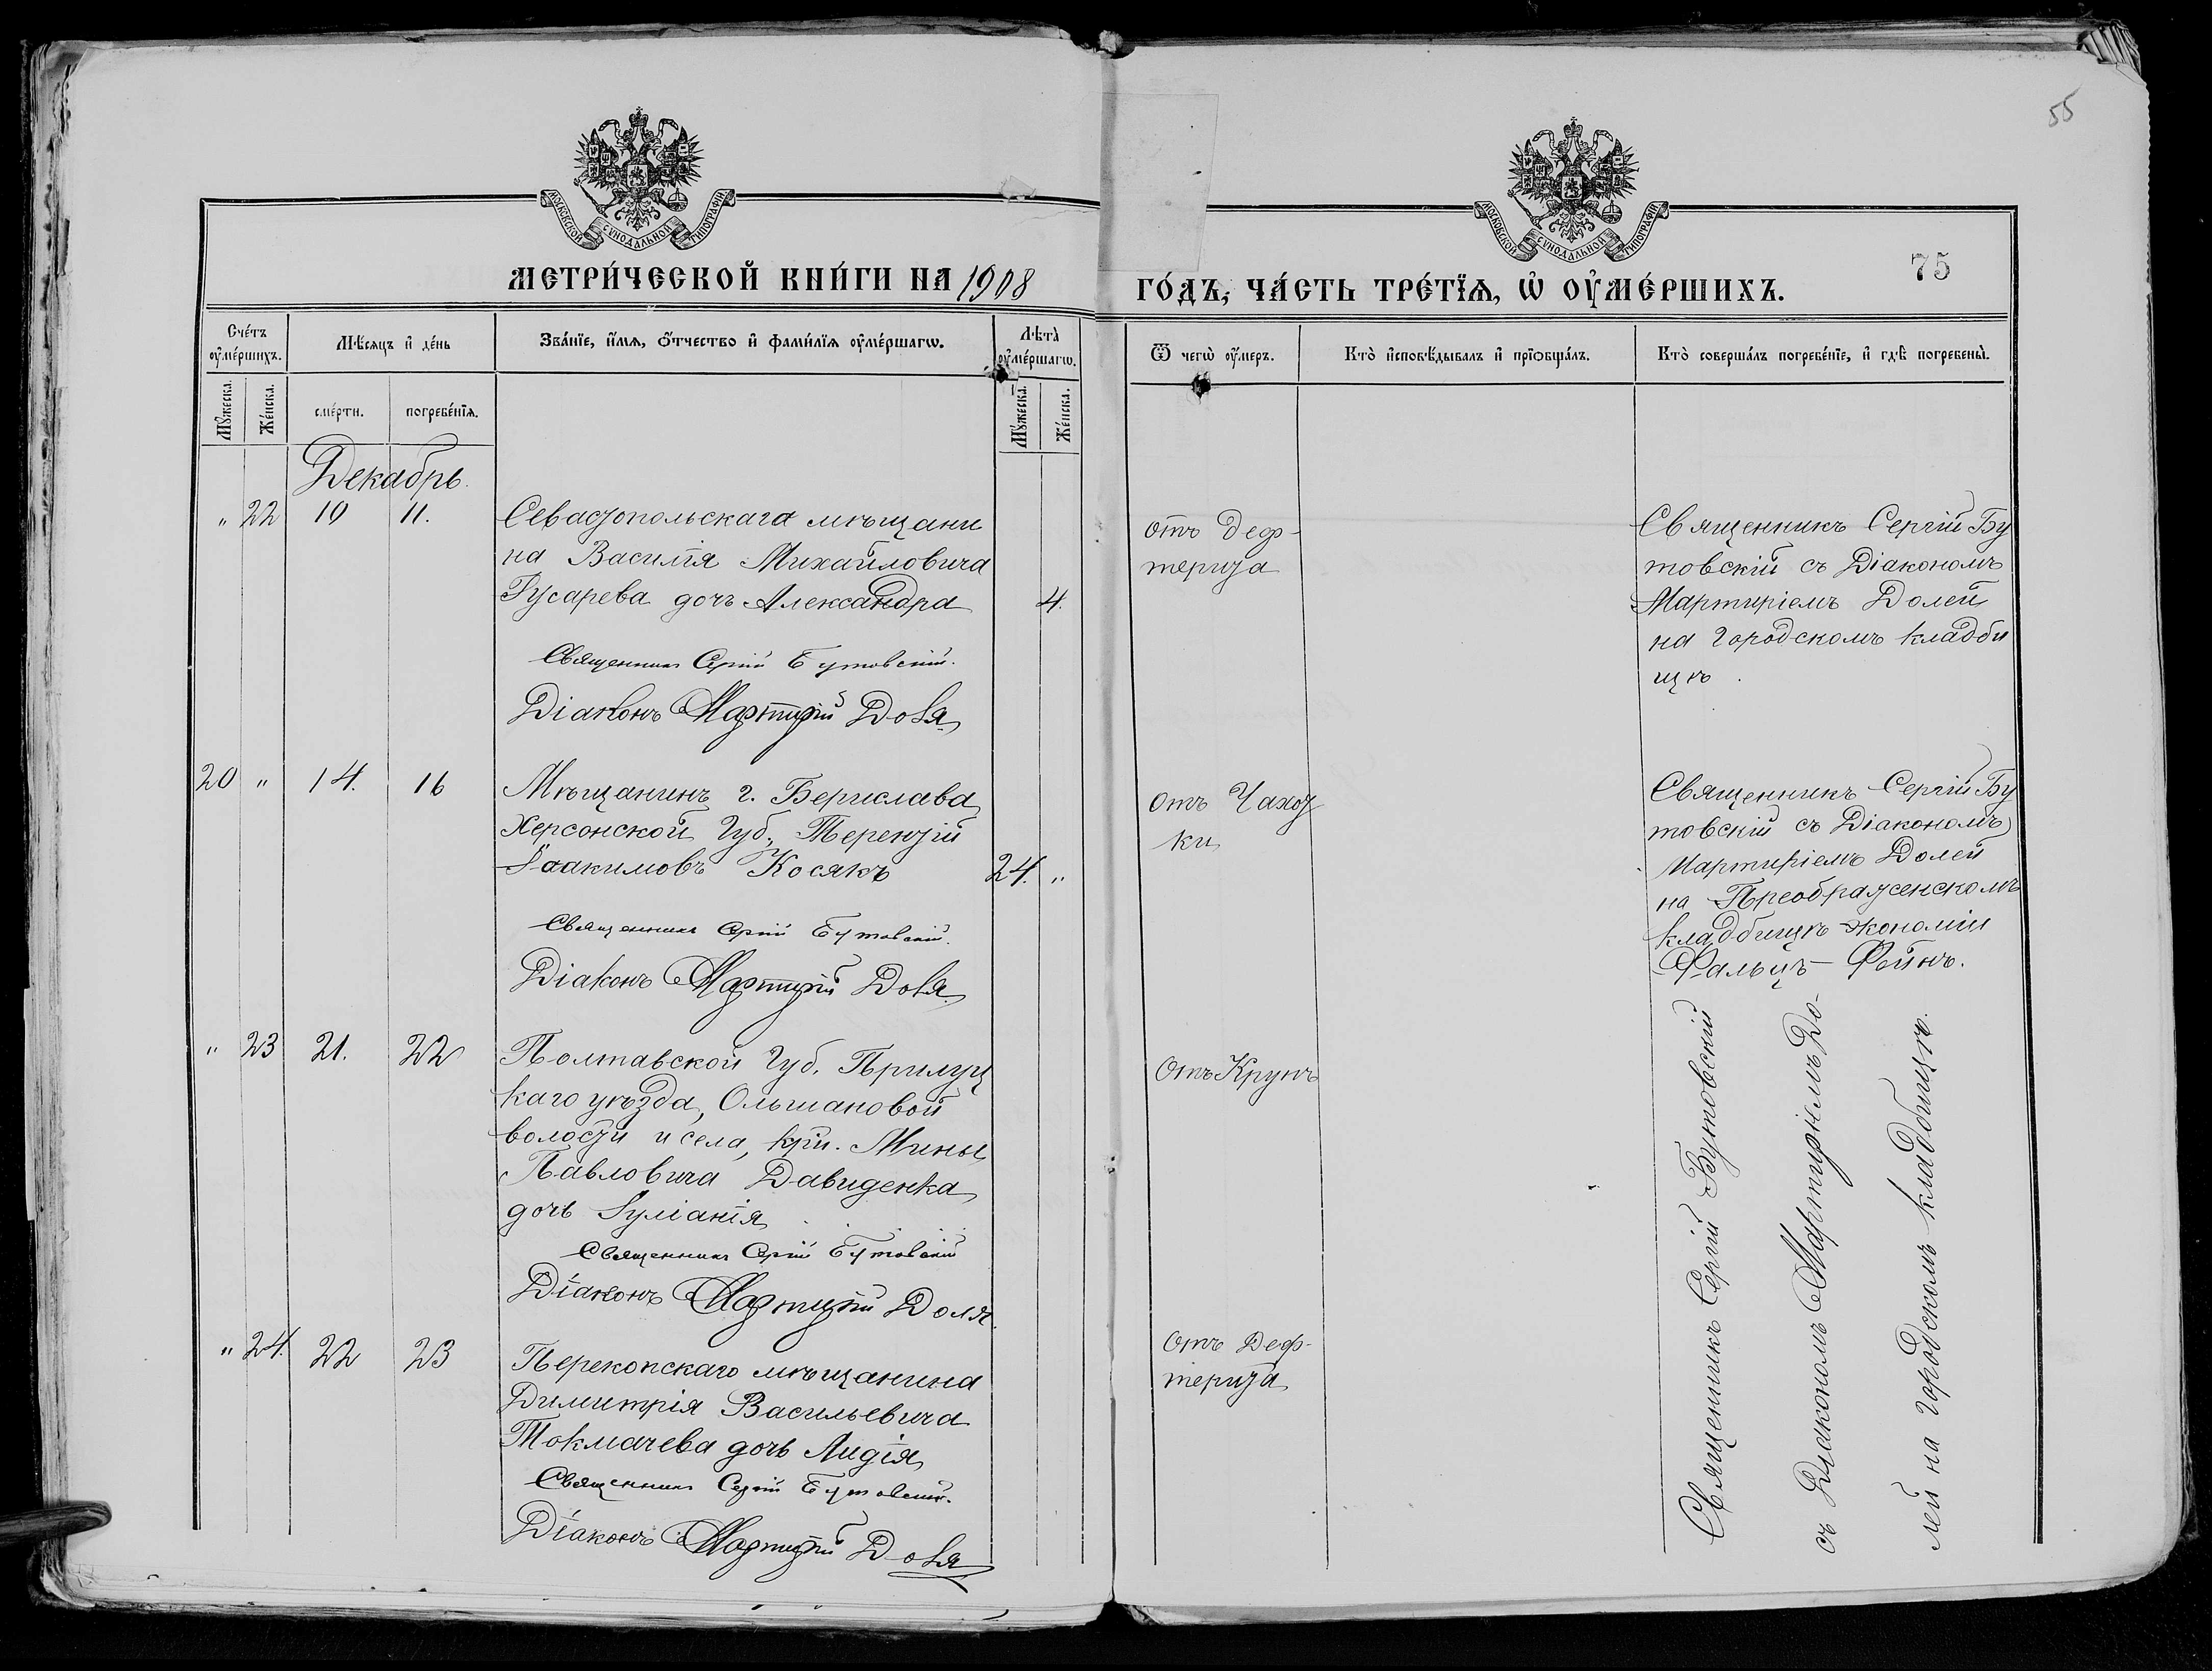 55
МОСКОВСКОЙ СѴНОДАЛЬНОЙ ТИПОГРАФІИ
МОСКОВСКОЙ СѴНОДАЛЬНОЙ ТИПОГРАФІИ
МЕТРИ́ЧЕСКОЙ КНИ́ГИ НА 1908
ГО́ДЪ, ЧА́СТЬ ТРЕ́ТЇѦ, Ѡ҆ ОУ҆МЕ́РШИХЪ.
75
Сче́тъ оу҆ме́ршихъ.
Мѣ́сяцъ и҆ де́нь
Зва́нїе, и҆́мѧ, о҆́тчество и҆ фами́лїѧ оу҆ме́ршагѡ.
Лѣта̀ оу҆ме́ршагѡ.
Ѿ чегѡ̀ оу҆́меръ.
Кто̀ и҆сповѣ́дывалъ и҆ прїѻбща́лъ.
Кто̀ соверша́лъ погребе́нїе, и҆ гдѣ̀ погребены̀.
Мꙋ́жеска.
Же́нска.
сме́рти.
погребе́нїѧ.
Мꙋ́жеска.
Же́нска.
Декабрь.
" 22 10 11.
Севастопольскаго мѣщани
на Василія Михайловича
Гусарева дочь Александра
4.
Священникъ Сергій Бутовскій.
Діаконъ Мартирій Доля
отъ Деф-
терита
Священникъ Сергій Бу
товскій съ Діакономъ
Мартиріемъ Долей
на Городскомъ кладби
щѣ.
20 " 14. 16
Мѣщанинъ г. Берислава
Херсонской Губ. Терентій
Іоакимовъ Косякъ
24. "
Священникъ Сергій Бутовскій.
Діаконъ Мартирій Доля
отъ Чахот
ки
Священникъ Сергій Бу
товскій съ Діакономъ
Мартиріемъ Долей
на Преображенскомъ
кладбищѣ экономіи
Фальцъ-Фейнъ.
" 23 21. 22
Полтавской Губ. Прилуц
каго уѣзда, Ольшановой
волости и села, кр. Мины
Павловича Давиденка
дочь Іуліанія
Священникъ Сергій Бутовскій
Діаконъ Мартирій Доля.
Отъ Крупъ
Священникъ Сергій Бутовскій
съ Діакономъ Мартиріемъ До-
лей на Городскомъ кладбищѣ.
" 24. 22 23
Перекопскаго мѣщанина
Димитрія Васильевича
Токмачева дочь Лидія
Священникъ Сергій Бутовскій.
Діаконъ Мартирій Доля
Отъ Деф-
терита